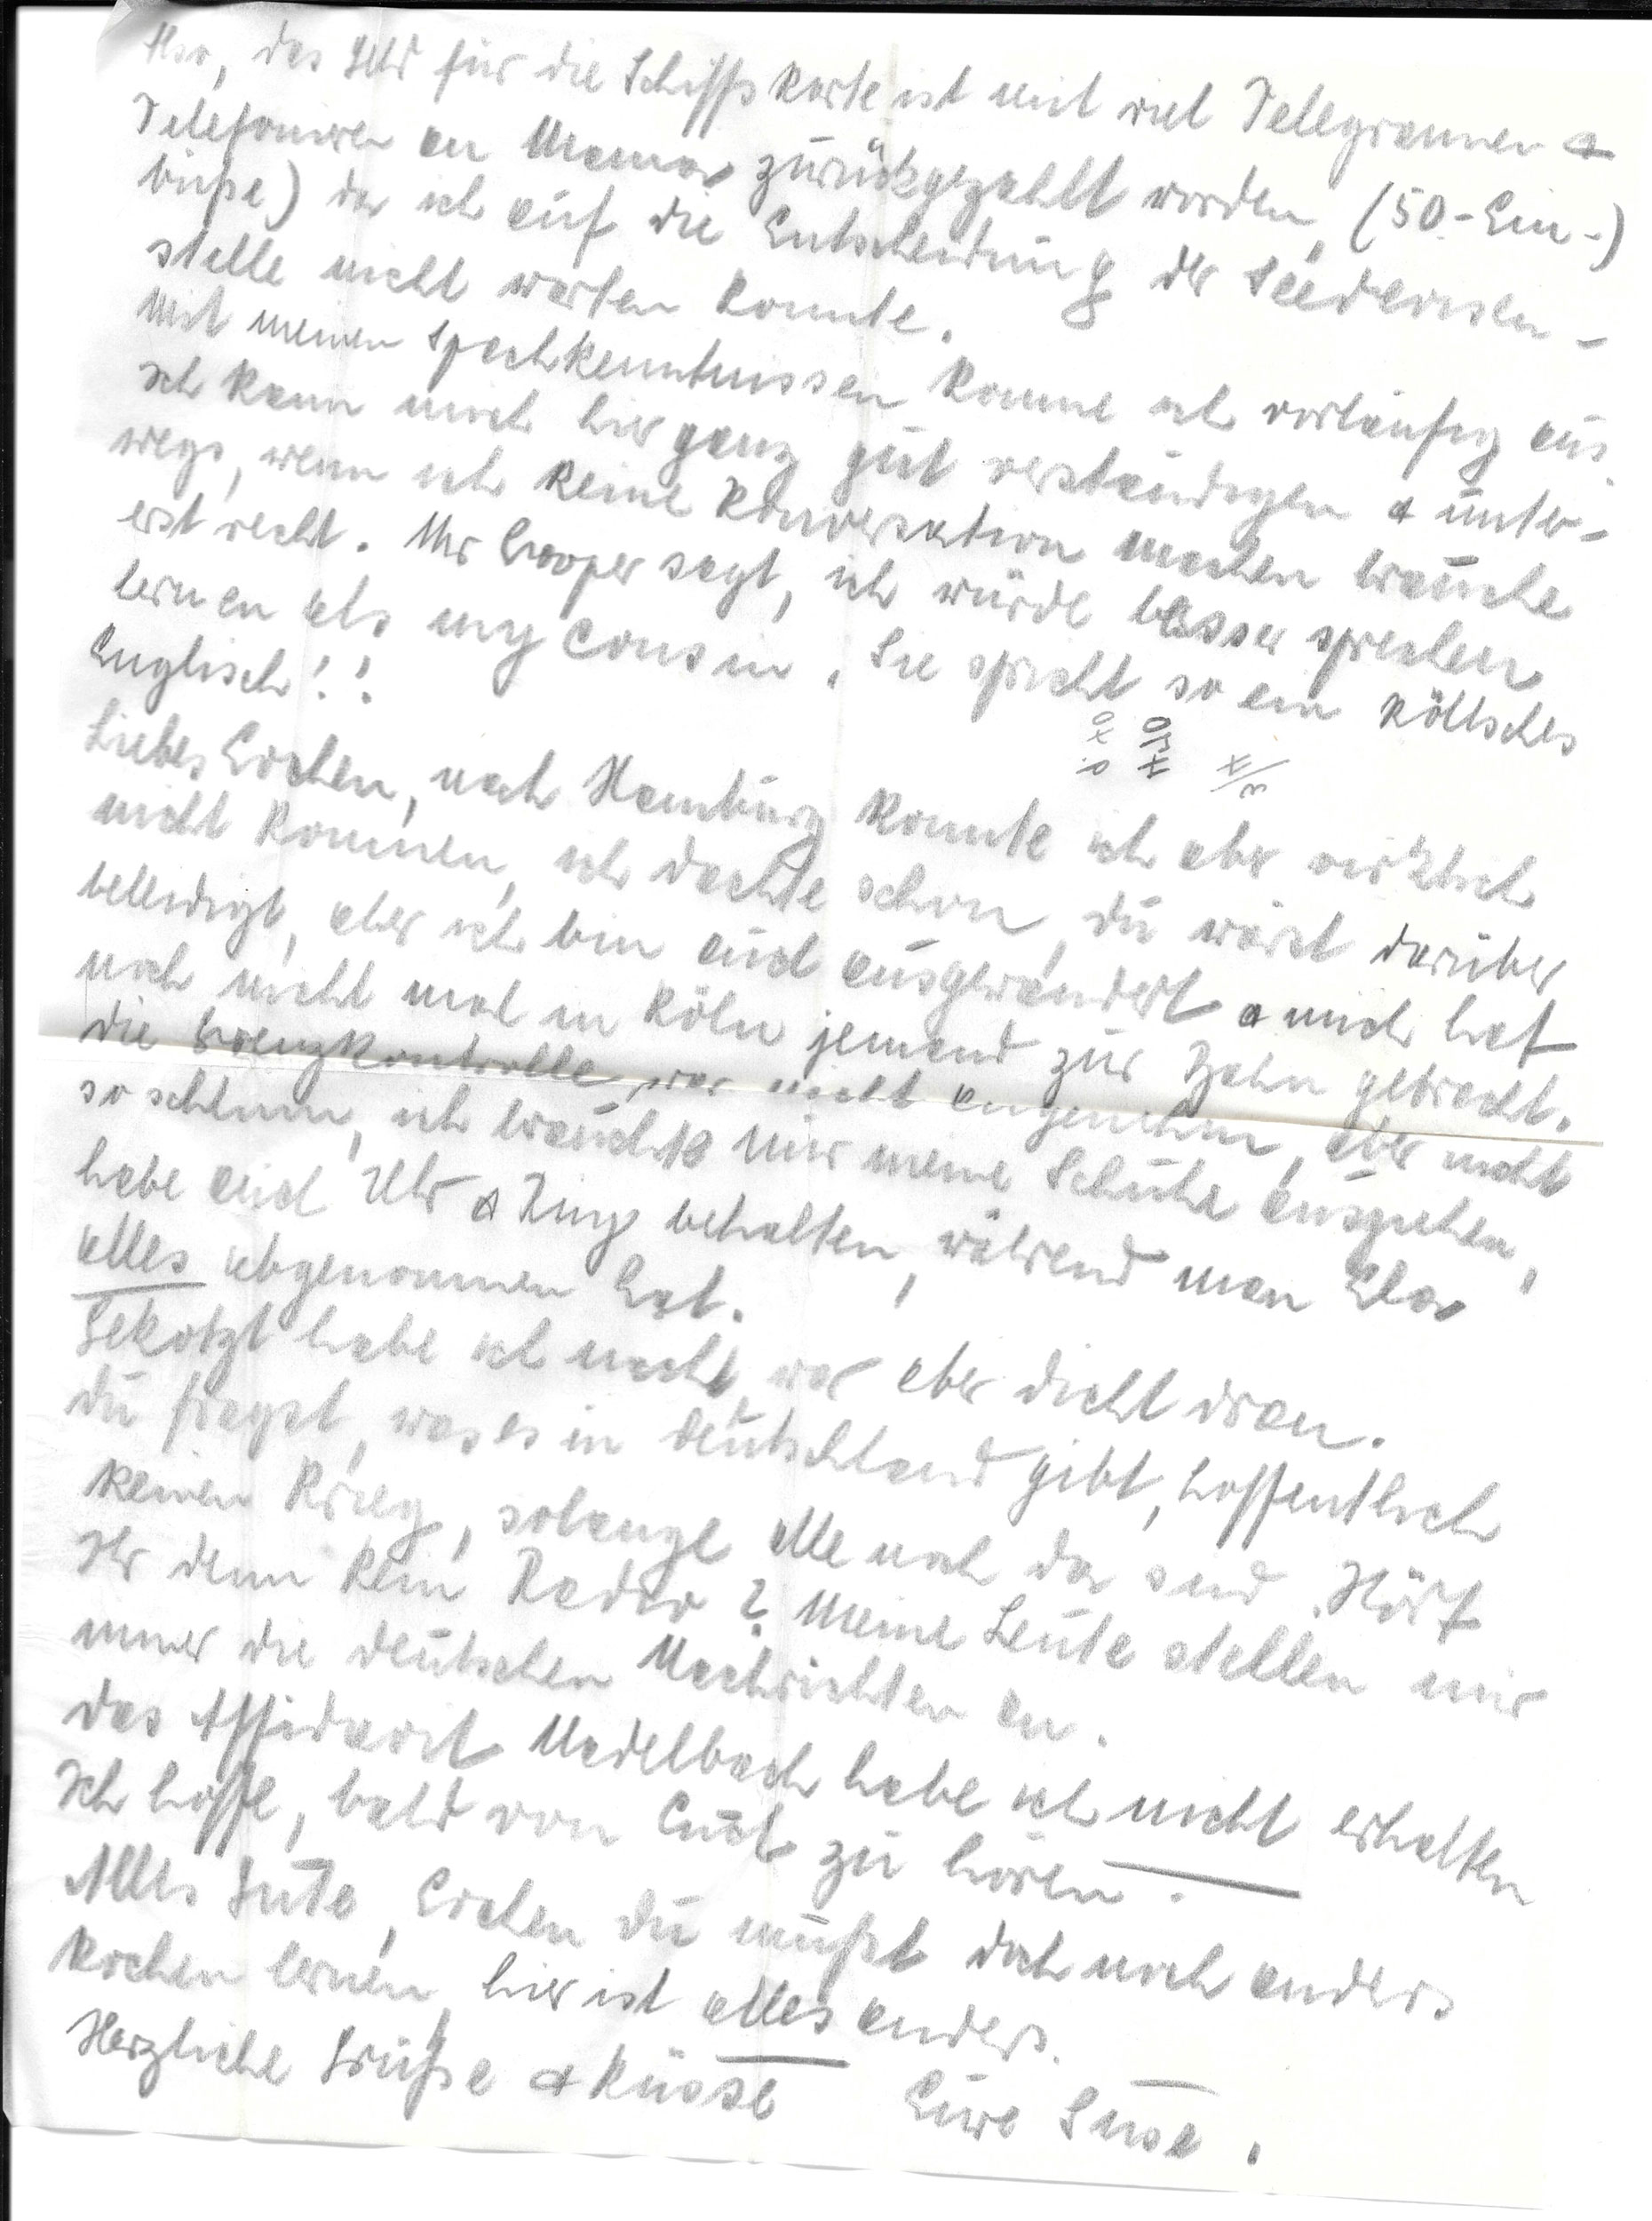 Also, das Geld für die Schiffskarte ist mit viel Telegrammen &
Telefonieren an Mama zurückgezahlt worden, (50.- Ein-)
buße) da ich auf die Entscheidung der Seedevisen-
stelle nicht warten konnte.
Mit meinen Spachkenntnissen komme ich vorläufig aus.
Ich kann mich hier ganz gut verständigen & unter-
wegs, wenn ich keine Konversation machen brauche
erst recht. Mr Cooper sagt, ich würde besser sprechen
lernen als my Cousin. Sie spricht so ein köllsches
Englisch!!
Liebes Erchen, nach Hamburg konnte ich aber wirklich
nicht kommen, ich dachte schon, du wärst darüber
beleidigt, aber ich bin auch ausgewandert & mich hat
noch nicht mal in Köln jemand zur Bahn gebracht.
Die Grenzkontrolle war nicht angenehm, aber nicht
so schlimm, ich brauchte nur meine Schuhe ausziehen,
habe auch Uhr & Ring behalten, während man
alles abgenommen hat.
Gekotzt habe ich nicht, war aber dicht dran.
Du fragst, was es in Deutschland gibt, hoffentlich
keinen Krieg, solange alle noch da sind. Hört
Ihr denn kein Radio? Meine Leute stellen mir
immer die deutschen Nachrichten an.
Das Affidavit Madelbach habe ich nicht erhalten
Ich hoffe, bald von Euch zu hören.
Alles Gute, Erchen du mußt doch noch anders
kochen lernen, hier ist alles anders.
Herzliche Grüße & Küsse Eure Suse.